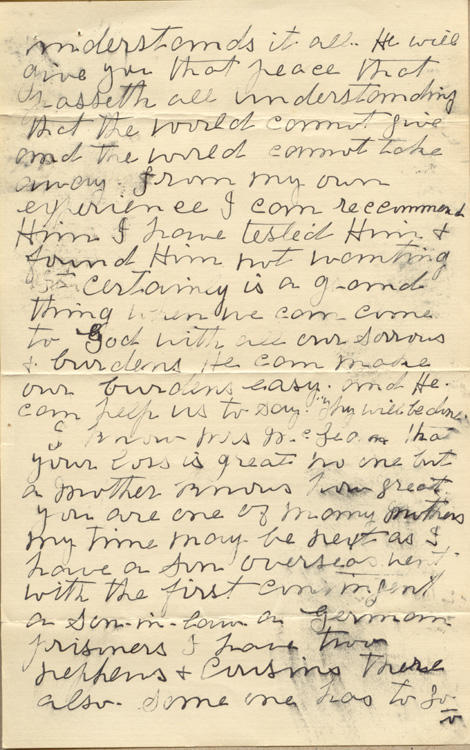 understands it all. He will
give you that peace that
passeth all understanding
that the world cannot give
and the world cannot take
away from my own
experience I can reccommend
Him I have tested Him &
found Him not wanting
It certainly is a grand
thing when we can come
to God with all our sorrows
& burdens He can make
our burdens easy. and He
can help us to say "Thy will be done.
I know Mrs that
your loss is great no one but
a mother knows how great
you are one of many mothers
my time may be next as I
have a son overseas went
with the first contingent
a son-in-law a German
prisoners I have two
nephews & Cousins there
also. Some one has to go